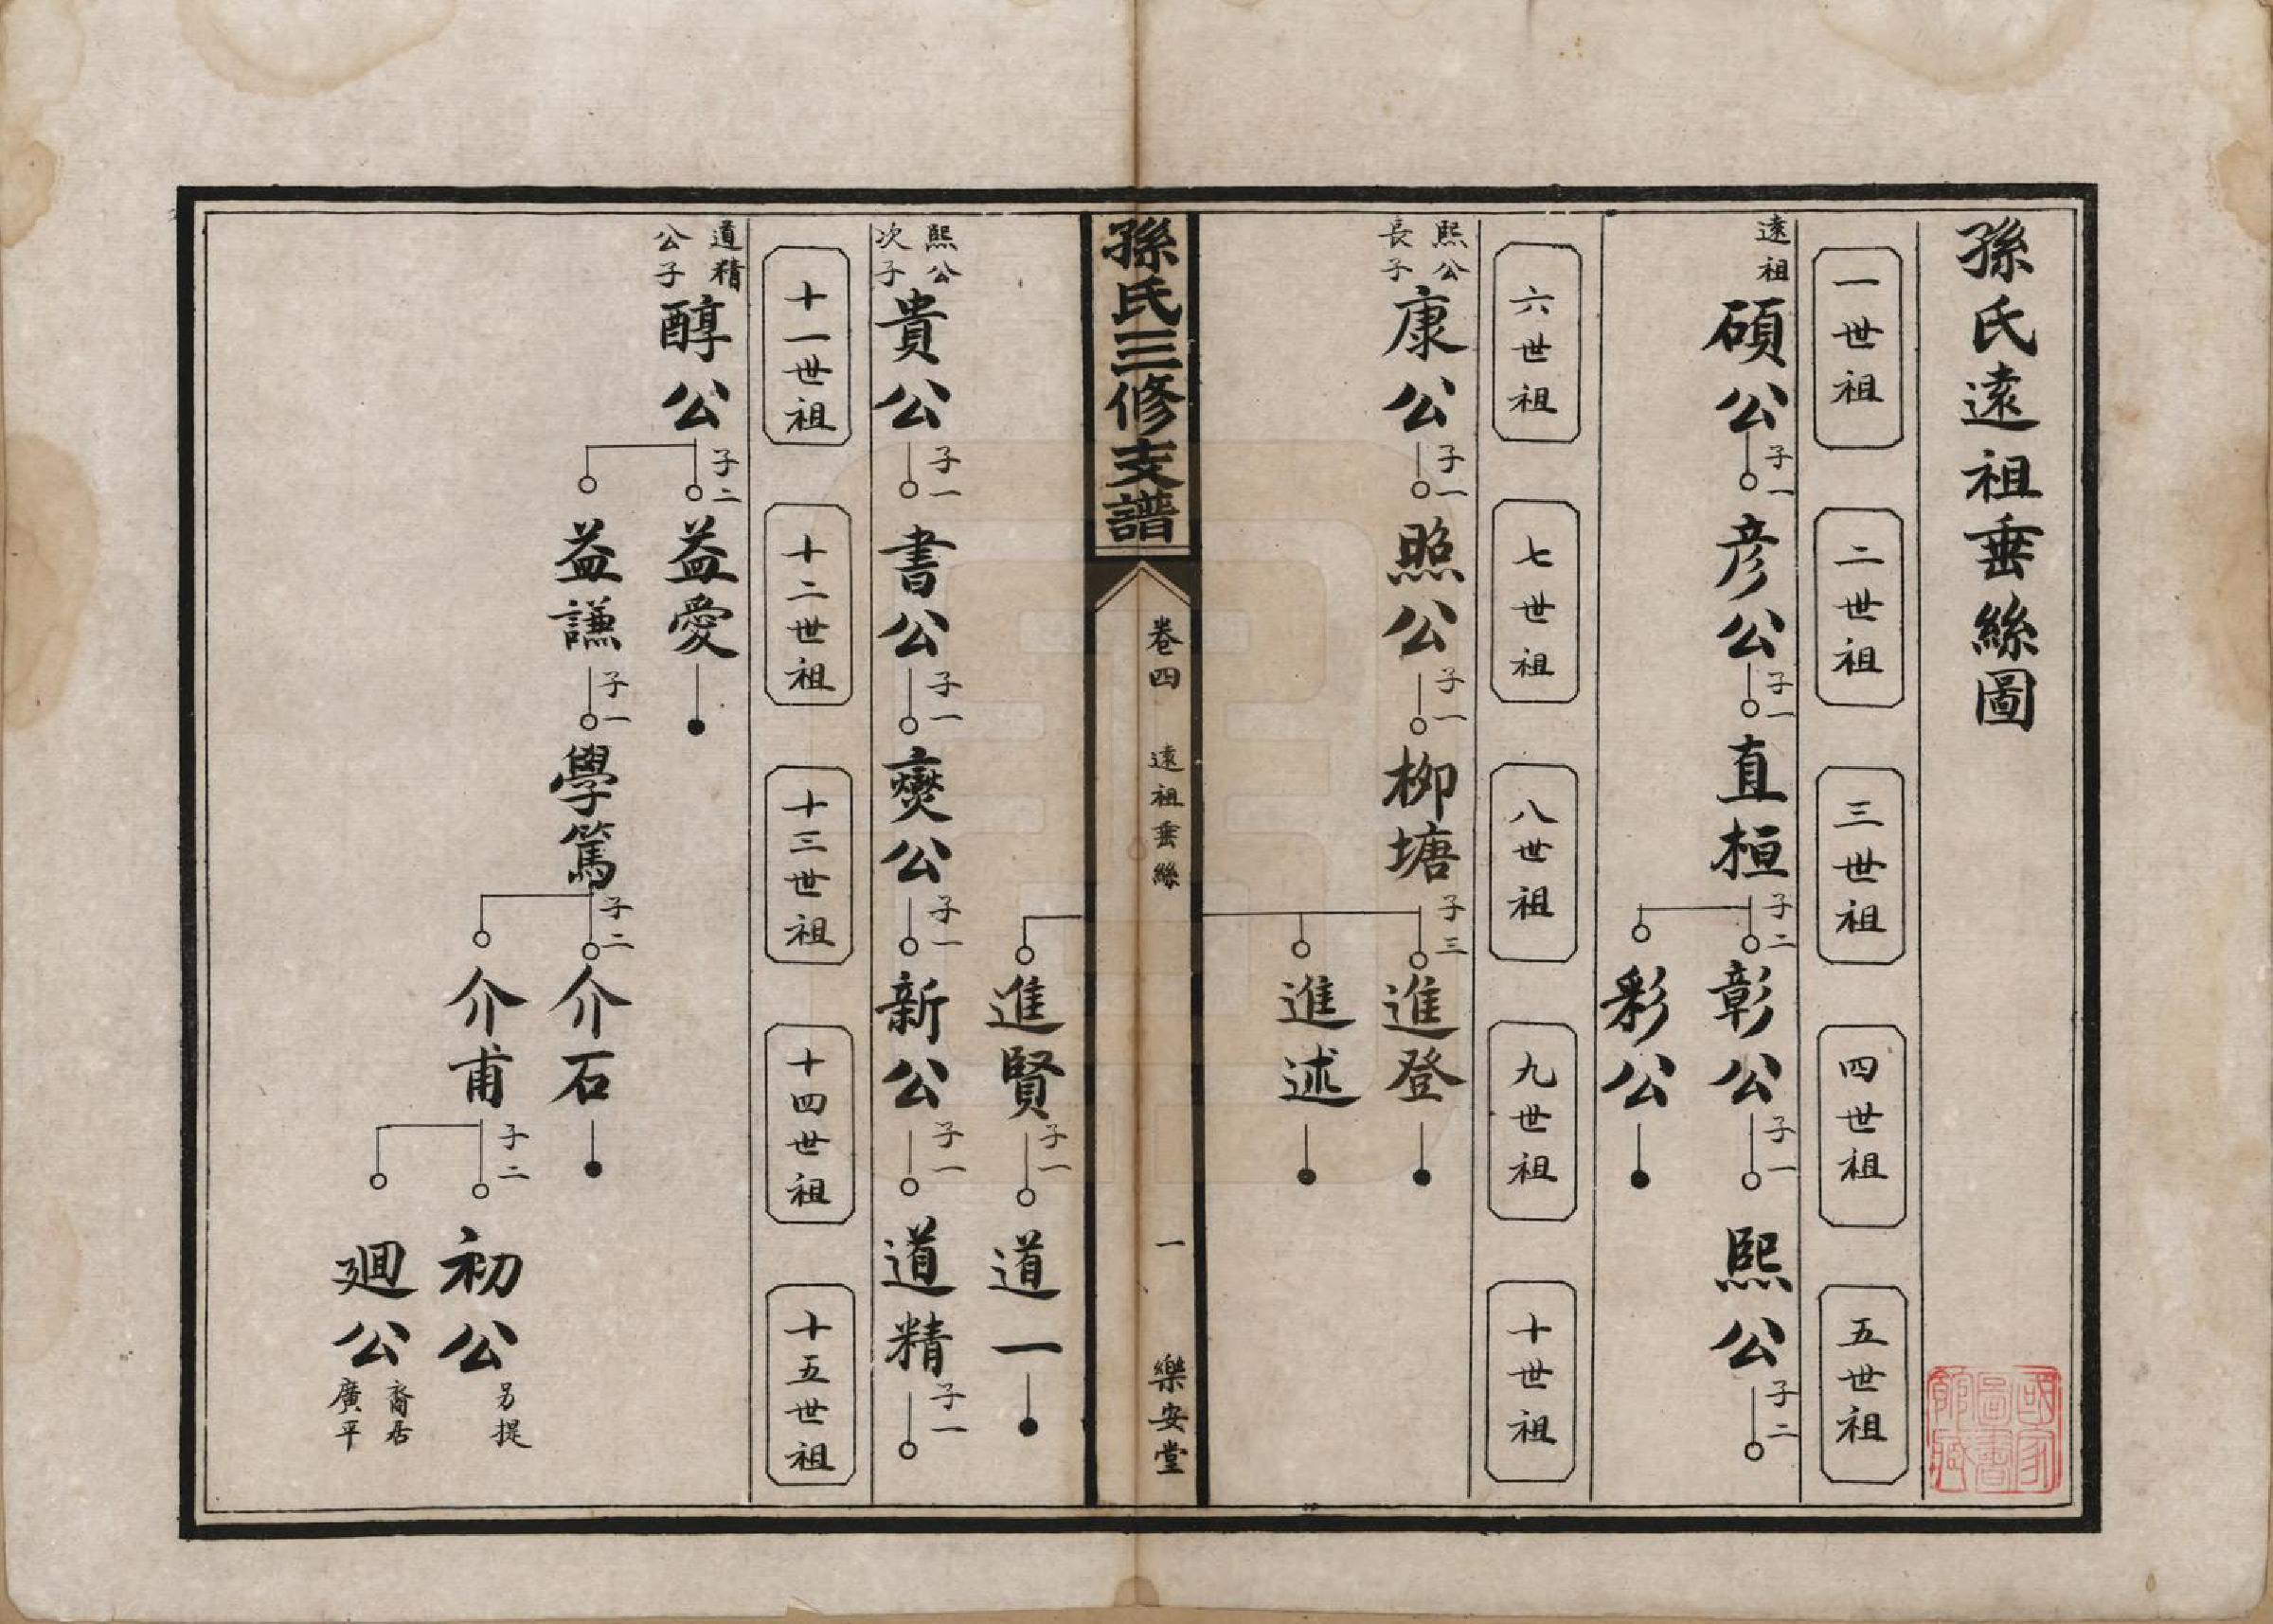 孫氏遠祖垂絲圖
一世祖
二世祖
三世祖
四世祖
五世祖
遠祖
碩公
子一
彥公
子一
直桓
子二
彰公
子一
熙公
子二
彩公
六世祖
七世祖
八世祖
九世祖
十世祖
熙公
長子
康公
子一
照公
子一
柳塘
子三
進登
進述
孫氏三修支譜
卷四
遠祖垂絲
一
樂安堂
進賢
子一
道一
熙公
次子
貴公
子一
書公
子一
爕公
子一
新公
子一
道精
子一
十一世祖
十二世祖
十三世祖
十四世祖
十五世祖
道精
公子
醇公
子二
益愛
益謙
子一
學篤
子二
介石
介甫
子二
初公
另提
廻公
裔居
廣平
國家
圖書
館藏